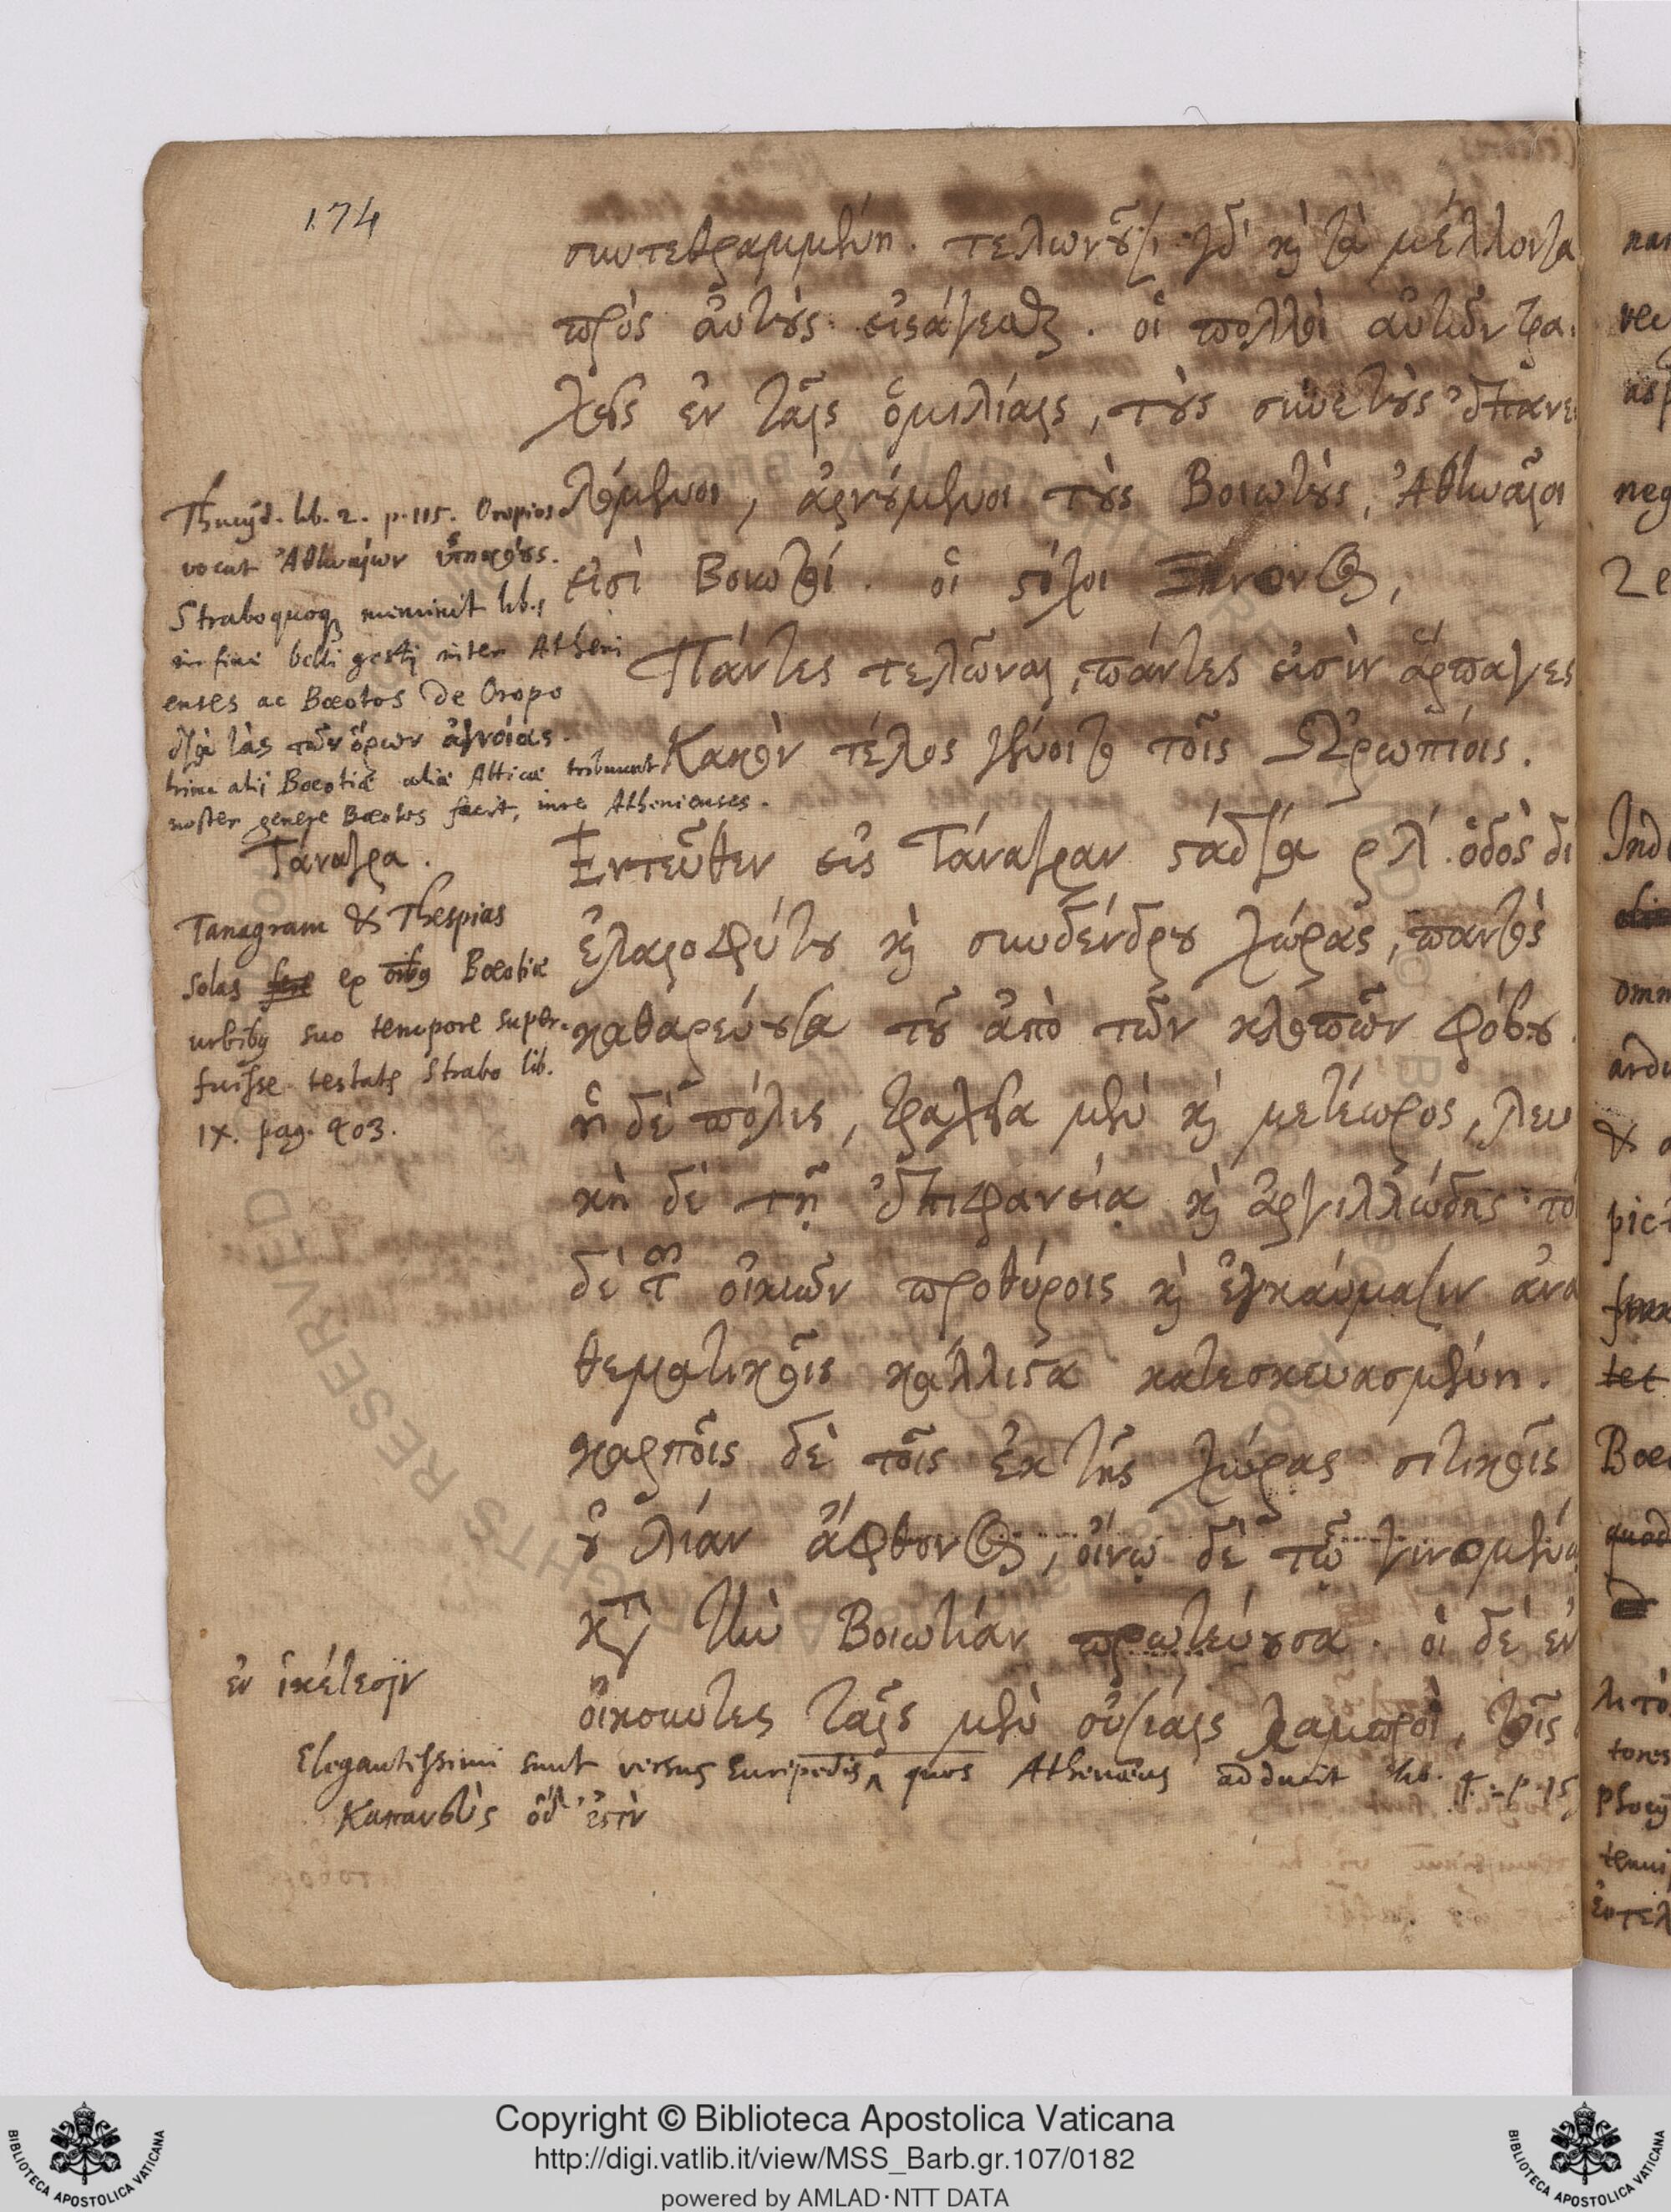 174
συντεθραμμένη. τελωνοῦσι γδ καὶ τὰ μέλλοντα
πρὸς αὐτοὺς εἰσάγεσθαι. οἱ πολλοὶ αὐτῶν τρα
χεῖς ἐν ταῖς ὁμιλίαις, τοὺς συνετοὺς ἐπανε
λόμενοι, ἀρνούμενοι τοὺς Βοιωτοὺς, Ἀθηναῖοι
εἰσὶ Βοιωτοί. οἱ στίχοι Ξένωνος,
Πάντες τελῶναι, πάντες εἰσὶν ἅρπαγες
Κακὸν τέλος γένοιτο τοῖς Ὠρωπίοις.
Ἐντεῦθεν εἰς Τάναγραν στάδια ρλ. ὁδὸς δι
ἐλαιοφύτου καὶ συνδένδρου χώρας, παντὸς
καθαρεύουσα τοῦ ἀπὸ τῶν κλοπῶν φόβου.
ἡ δὲ πόλις, τραχεῖα μὲν καὶ μετέωρος, λευ
κὴ δὲ τῇ ἐπιφανείᾳ καὶ ἀργιλλώδης· τὸ
δὲ τῶν οἰκιῶν προθύροις καὶ ἐγκαύμασιν ἀνα
θεματικοῖς κάλλιστα κατεσκευασμένη.
καρποῖς δὲ τοῖς ἐκ τῆς χώρας σιτικοῖς
οὐ λίαν ἄφθονος, οἴνῳ δὲ τῷ γινομένῳ
κατὰ τὴν Βοιωτίαν πρωτεύουσα. οἱ δὲ ἐν
οἰκοῦντες ταῖς μὲν οὐσίαις λαμπροὶ, τοῖς
Thucyd. lib. 2. p. 115. Oropios
vocat Ἀθηναίων ὑπηκόους.
Strabo quoq meminit lib. 1
in fine belli gesti inter Atheni
enses ac Bœotos de Oropo
διὰ τὰς τῶν ὅρων ἀγνοίας.
hinc alii Bœotiæ alii Atticæ tribuunt
noster genere Bœotos facit, iure Athenienses.
Τάναγρα.
Tanagram & Thespias
solas fere ex oibq Bœotiæ
urbibq suo tempore super
fuisse testatq Strabo lib.
IX. pag. 403.
ἐν ἱκέτεσιν
Elegantissimi sunt versus Euripedis quos Athenæus adducit lib. 4. p. 15
Καπανεὺς ὅδ' ἐστὶν
Copyright © Biblioteca Apostolica Vaticana
http://digi.vatlib.it/view/MSS_Barb.gr.107/0182
powered by AMLAD·NTT DATA
BIBLIOTECA APOSTOLICA VATICANA
BIBLIOTECA APOSTOLICA VATICANA